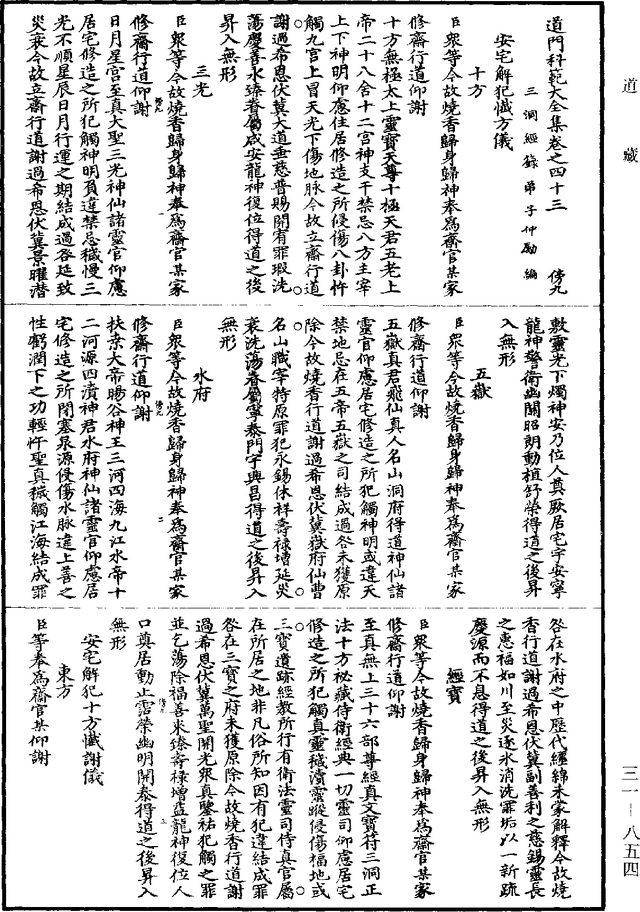 道藏
道門科範大全集卷之四十三　傍九
三洞經籙弟子仲勵編
安宅解犯懺方儀
十方
臣衆等今故燒香歸身歸神奉爲齋官某家
修齋行道仰謝
十方無極太上靈寶天尊十極天君五老上
帝二十八舍十二宫神支干禁忌八方主宰
上下神明仰慮住居修造之所侵傷八卦忤
觸九宫上冒天光下傷地脉今故立齋行道
謝過希恩伏冀大道垂慈普賜開宥罪瑕洗
蕩慶善永臻眷屬咸安龍神復位得道之後
昇入無形
三光
臣衆等今故燒香歸身歸神奉爲齋官某家
修齋行道仰謝
日月星宫至真大聖三光神仙諸靈官仰慮
居宅修造之所犯觸神明頁違禁忌穢慢三
光不順星辰日月行運之期結成過咎延致
災衰今故立齋行道謝過希恩伏冀景曜潜
敷靈光下燭神安乃位人奠厥居宅宇安寧
龍神警衛幽關昭朗動植舒榮得道之後昇
入無形
五嶽
臣衆等今故燒香歸身歸神奉爲齋官某家
修齋行道仰謝
五嶽真君飛仙真人名山洞府得道神仙諸
靈官仰慮居宅修造之所犯觸神明或違天
禁地忌在五帝五嶽之司結成過咎未獲原
除今故燒香行道謝過希恩伏冀嶽府仙曹
名山職宰特原罪犯永錫休祥壽禄增延災
衰洗蕩眷屬寧泰門宇興昌得道之後昇入
無形
水府
臣衆等今故燒香歸身歸神奉爲齋官某家
修齋行道仰謝
扶桑大帝暘谷神王三河四海九江水帝十
二河源四瀆神君水府神仙諸靈官仰慮居
宅修造之所閉塞泉源侵傷水脉違上善之
性虧潤下之功輕忤聖真穢觸江海結成罪
咎在水府之中歷代纏綿未蒙解釋今故燒
香行道謝過希恩伏冀副善利之慈錫靈長
之惠福如川至災逐水消洗罪垢以一新疏
慶源而不息得道之後昇入無形
經寶
臣衆等今故燒香歸身歸神奉爲齋官某家
修齋行道仰謝
至真無上三十六部尊經真文寶符三洞正
法十方秘藏侍衛經典一切靈司仰慮居宅
修造之所犯觸真靈穢瀆靈蹤侵傷福地或
三寶遺跡經教所行有衛法靈司侍真官屬
在所居之地非凡俗所知因有犯違結成罪
咎在三寶之府未獲原除今故燒香行道謝
過希恩伏冀萬聖開光衆真鑒祐犯觸之罪
並乞蕩除福善來臻壽禄增益龍神復位人
口奠居動止霑榮幽明開泰得道之後昇入
無形
安宅解犯十方懺謝儀
東方
臣等奉爲齋官某仰謝
三一—八五四